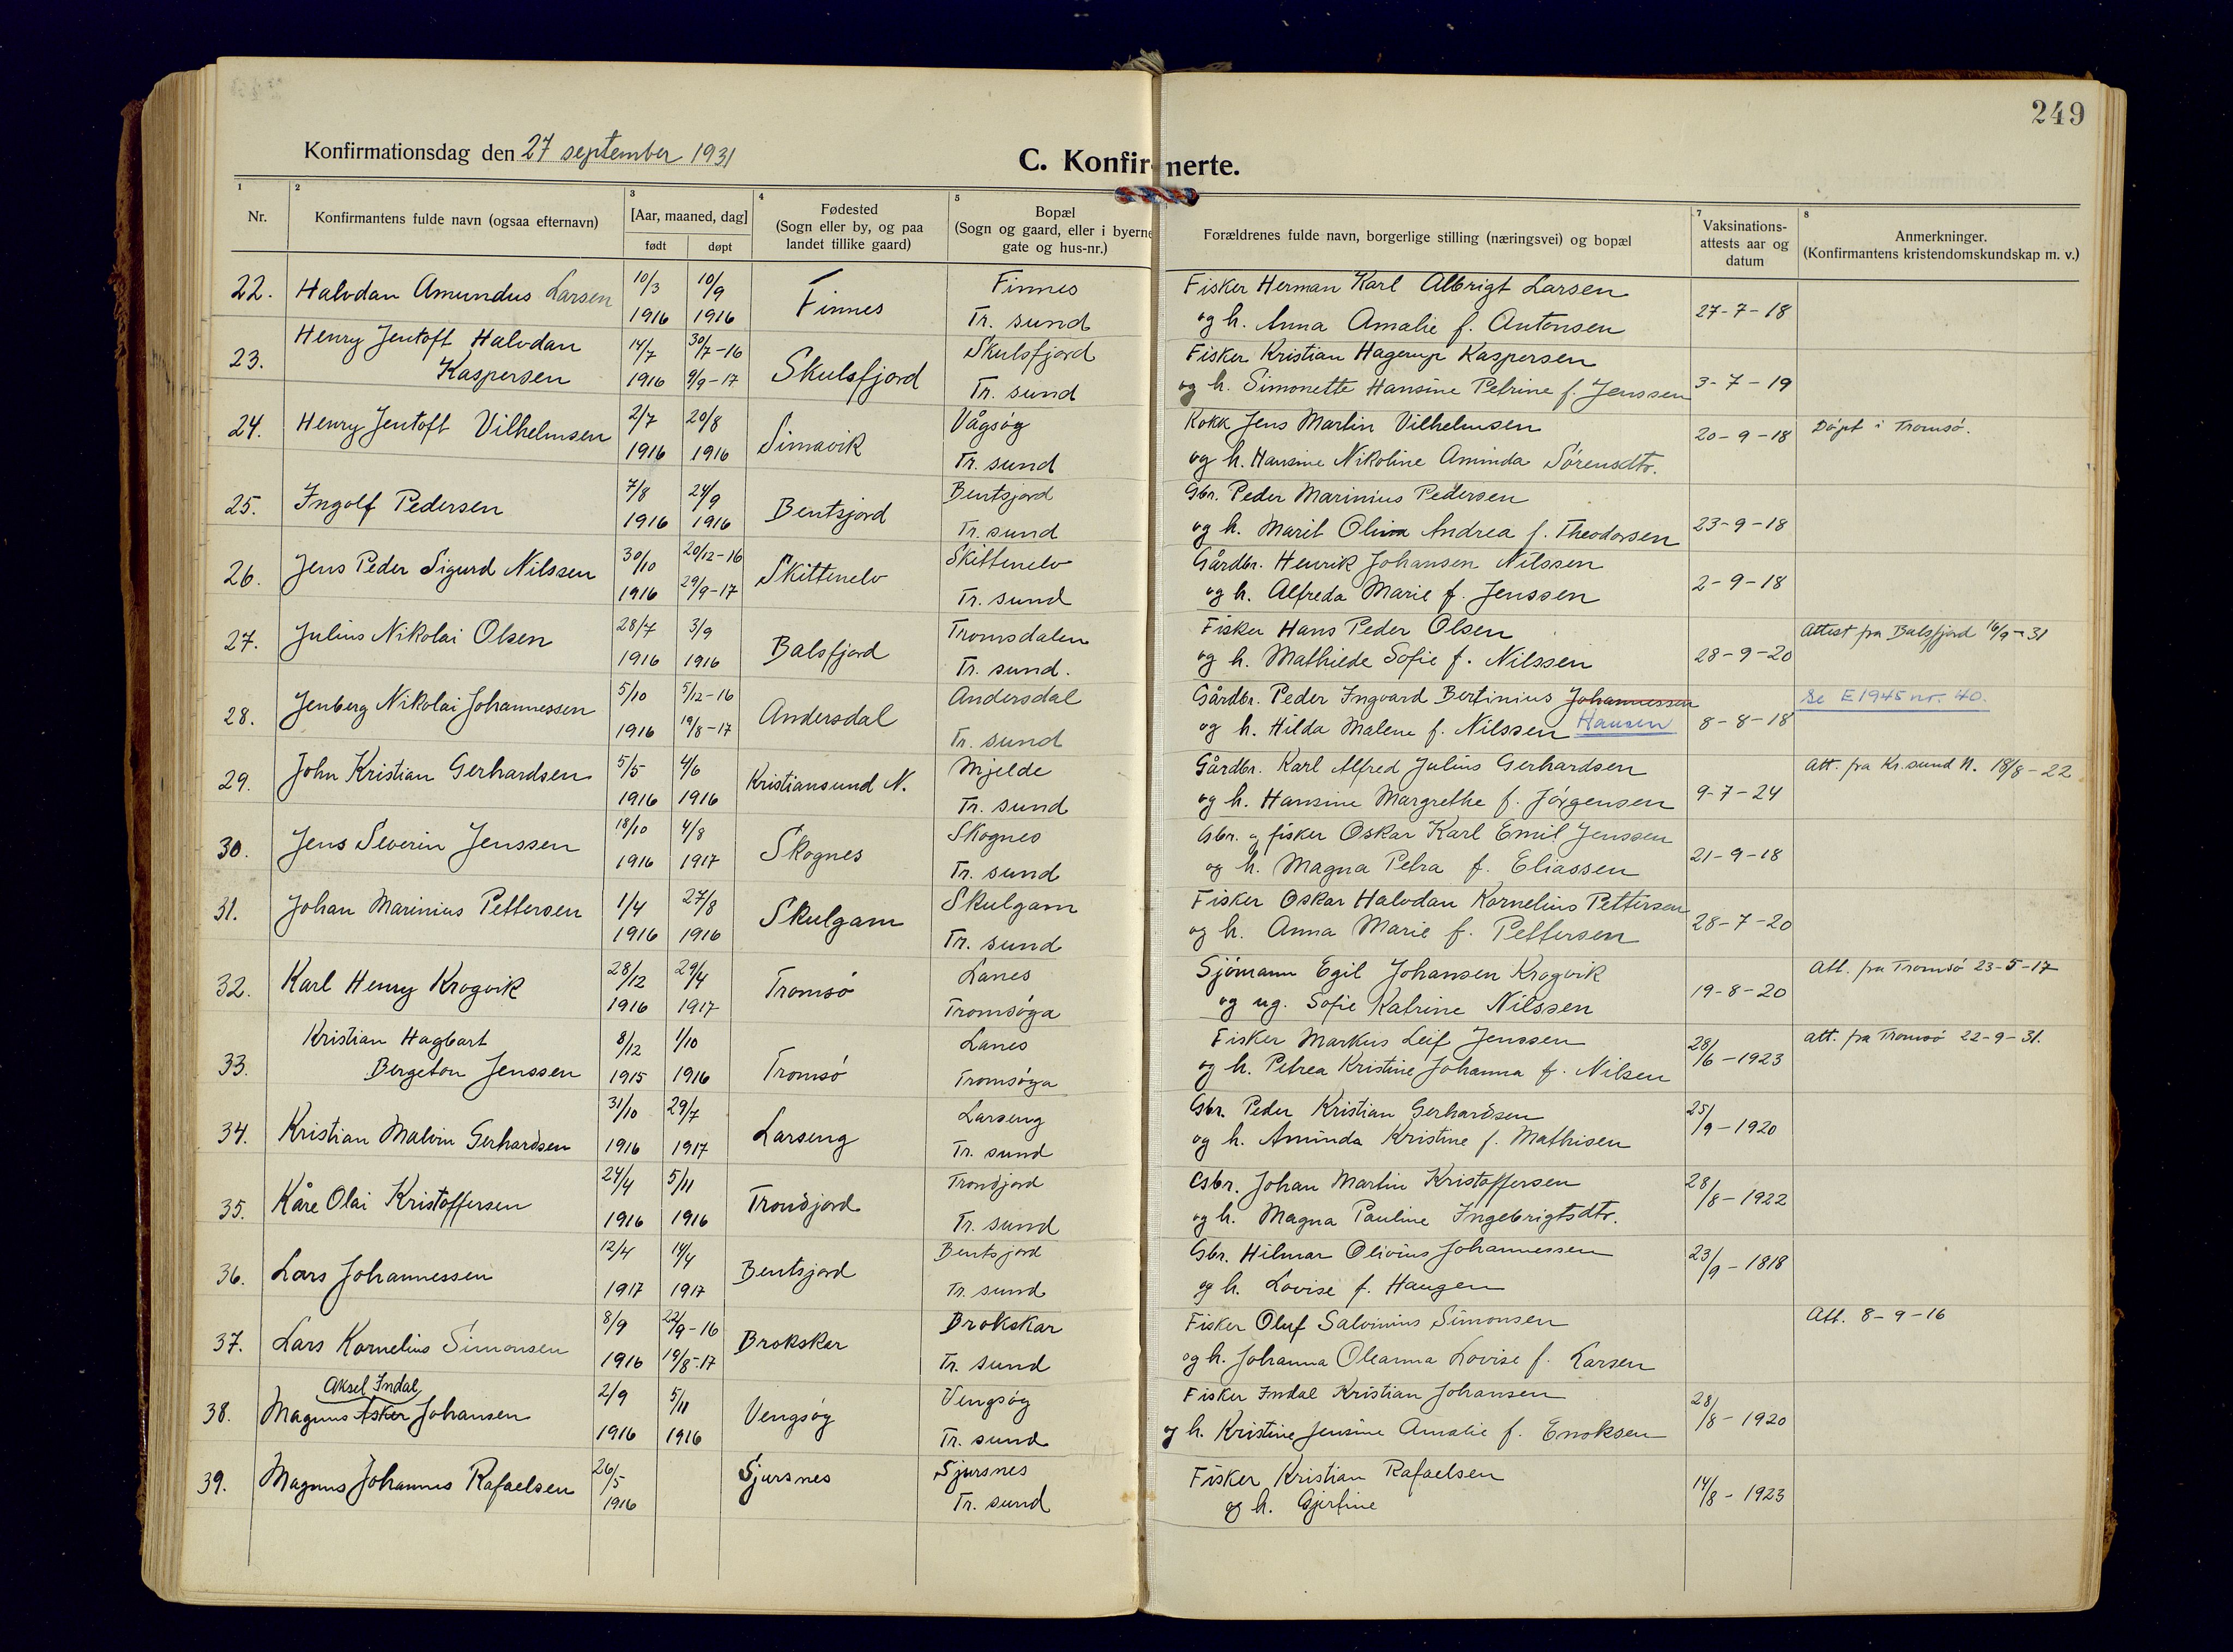 249
Konfirmationsdag den 27 september 1931
C. Konfirmerte.
1 2 3 4 5 7 8
Nr.
Konfirmantens fulde navn (ogsaa efternavn)
[Aar, maaned, dag]
født døpt
Fødested
(Sogn eller by, og paa
landet tillike gaard)
Bopæl
(Sogn og gaard, eller i byerne
gate og hus-nr.)
Forældrenes fulde navn, borgerlige stilling (næringsvei) og bopæl
Vaksinations-
attests aar og
datum
Anmerkninger.
(Konfirmantens kristendomskundskap m. v.)
22. Halvdan Amundus Larsen 10/3 1916 10/9 1916 Finnes Finnes Tr. sund
Fisker Herman Karl Albrigt Larsen
og h. Anna Amalie f. Antonsen 27-7-18
23. Henry Jentoft Halvdan
Kaspersen 14/7 1916 30/7-16 9/9-17 Skulsfjord Skulsfjord Tr. sund
Fisker Kristian Hagerup Kaspersen
og h. Simonette Hansine Petrine f. Jenssen 3-7-19
24. Henry Jentoft Vilhelmsen 2/7 1916 20/8 1916 Simavik Vågsøg Tr. sund
Kokk Jens Martin Vilhelmsen
og h. Hansine Nikoline Aminda Sörensdtr. 20-9-18 Döpt i Tromsö.
25. Ingolf Pedersen 7/8 1916 24/9 1916 Bentsjord Bentsjord Tr. sund
Gbr. Peder Marinius Pedersen
og h. Marit Olina Andrea f. Theodorsen 23-9-18
26. Jens Peder Sigurd Nilssen 30/10 1916 20/12-16 29/9-17 Skittenelv Skittenelv Tr. sund
Gårdbr. Henrik Johansen Nilssen
og h. Alfreda Marie f. Jenssen 2-9-18
27. Julius Nikolai Olsen 28/7 1916 3/9 1916 Balsfjord Tromsdalen Tr. sund.
Fisker Hans Peder Olsen
og h. Mathilde Sofie f. Nilssen 28-9-20 Attest fra Balsfjord 16/9-31
28. Jenberg Nikolai Johannessen 5/10 1916 5/12-16 19/8-17 Andersdal Andersdal Tr. sund
Gårdbr. Peder Ingvard Bertinius Johannessen Hansen
og h. Hilda Malene f. Nilssen 8-8-18 Se E 1945 nr. 40.
29. John Kristian Gerhardsen 5/5 1916 4/6 1916 Kristiansund N. Mjelde Tr. sund
Gårdbr. Karl Alfred Julius Gerhardsen
og h. Hansine Margrethe f. Jörgensen 9-7-24 Att. fra Kr.sund N. 18/8-22
30. Jens Severin Jenssen 18/10 1916 4/8 1917 Skognes Skognes Tr. sund
Gbr. og fisker Oskar Karl Emil Jenssen
og h. Magna Petra f. Eliassen 21-9-18
31. Johan Marinius Pettersen 1/4 1916 27/8 1916 Skulgam Skulgam Tr. sund
Fisker Oskar Halvdan Kornelius Pettersen
og h. Anna Marie f. Pettersen 28-7-20
32. Karl Henry Krogvik 28/12 1916 29/4 1917 Tromsö Lanes Tromsöya
Sjömann Egil Johansen Krogvik
og ug. Sofie Katrine Nilssen 19-8-20 Att. fra Tromsö 23-5-17
33. Kristian Hagbart
Bergeton Jenssen 8/12 1915 1/10 1916 Tromsö Lanes Tromsöya
Fisker Markus Leif Jenssen
og h. Petrea Kristine Johanna f. Nilsen 28/6-1923 att. fra Tromsö 22-9-31.
34. Kristian Malvin Gerhardsen 31/10 1916 29/7 1917 Larseng Larseng Tr. sund
Gbr. Peder Kristian Gerhardsen
og h. Aminda Kristine f. Mathisen 25/9-1920
35. Kåre Olai Kristoffersen 24/4 1916 5/11 1916 Trondjord Trondjord Tr. sund
Gbr. Johan Martin Kristoffersen
og h. Magna Pauline Ingebrigtsdtr. 28/8-1922
36. Lars Johannessen 12/4 1917 14/4 1917 Bentsjord Bentsjord Tr. sund
Gbr. Hilmar Olivius Johannessen
og h. Lovise f. Haugen 23/9-1818
37. Lars Kornelius Simonsen 8/9 1916 22/9-16 19/8-17 Broksker Brokskar Tr. sund
Fisker Oluf Salvinius Simonsen
og h. Johanna Oleanna Lovise f. Larsen Att. 8-9-16
Aksel Indal
38. Magnus Asker Johansen 2/9 1916 5/11 1916 Vengsøy Vengsøy Tr. sund
Fisker Indal Kristian Johansen
og h. Kristine Jensine Amalie f. Enoksen 28/8-1920
39. Magnus Johannes Rafaelsen 26/5 1916 Sjursnes Sjursnes Tr. sund
Fisker Kristian Rafaelsen
og h. Gjertine 14/8-1923